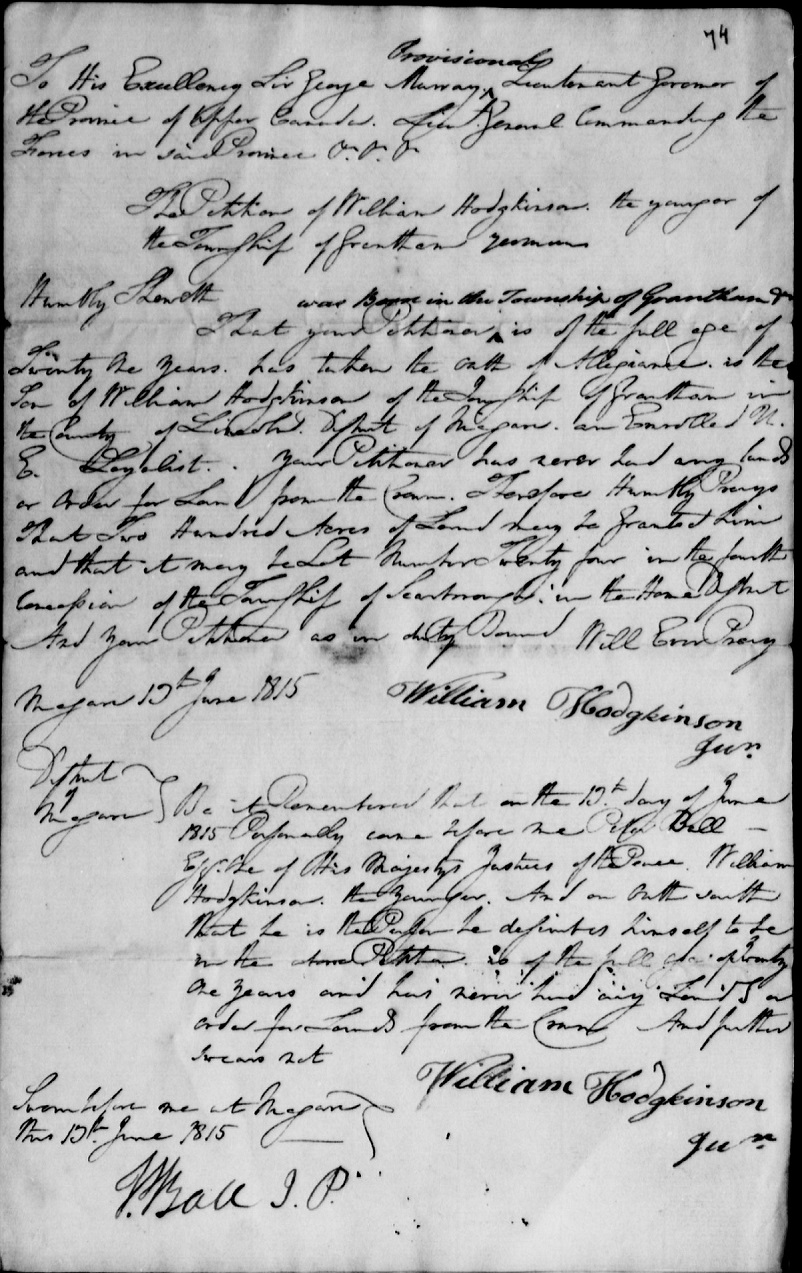 74
Provisional
To His Excellency Sir George Murray, ^ Lieutenant Governor of
the Province of Upper Canada. Lieut. General Commanding the
Forces in said Province &c. &c. &c
The Petition of William Hodgkinson. the younger of
the Township of Grantham yeoman
Humbly Sheweth
was Born in the Township of Grantham &
That your Petitioner ^ is of the full age of
Twenty One Years. has taken the Oath of Allegiance. is the
Son of William Hodgkinson of the Township of Grantham in
the County of Lincoln. District of Niagara. an Enrolled U.
E. Loyalist. . Your Petitioner has never had any lands
or Order for Land from the Crown. Therefore Humbly Prays
That Two Hundred Acres of Land may be Granted him
and that it may be Lot Number Twenty four in the fourth
Concession of the Township of Scarborough: in the Home District
And your Petitioner as in duty Bound Will Ever Pray
Niagara June 1815
William Hodgkinson
Junr
District
of
Niagara
Be it Remembered that on the day of June
1815 Personally came before me Peter Ball —
Esqr. One of His Majestys Justices of the Peace. William
Hodgkinson. the younger. And on Oath saith
that he is the Person he describes himself to be
in the above Petition. is of the full age of Twenty
One Years and has never had any Lands or
order for Lands from the Crown And further
swears not
William Hodgkinson
Junr
Sworn before me at Niagara
this June 1815
Ball J. P.